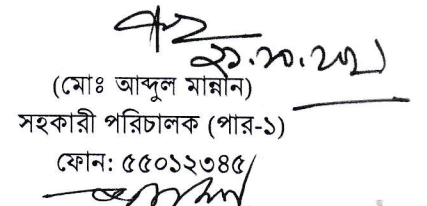 (মোঃ আব্দুল মান্নান)
সহকারী পরিচালক (পার-১)
ফোন: ৫৫০১২৩৪৫